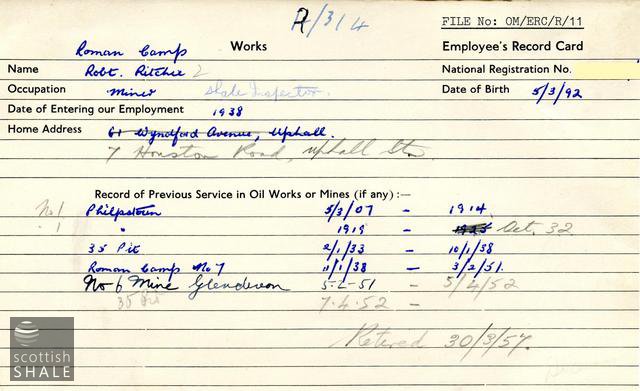 R/314
FILE No: OM/ERC/R/11
Roman Camp Works Employee's Record Card
Name Robt. Ritchie 2 National Registration No.
Occupation Miner Shale Inspector. Date of Birth 5/3/92
Date of Entering our Employment 1938
Home Address 61 Wyndford Avenue, Uphall.
7 Houston Road, Uphall Stn
Record of Previous Service in Oil Works or Mines (if any):—
No 1 Philpstoun 5/3/07 – 1914.
" 1 " 1919 – Oct. 32
35 Pit 2/1/33 – 10/1/38
Roman Camp No 7 11/1/38 – 3/2/51.
No 6 Mine Glendevon 5-2-51 – 5/4/52
35 Pit 7.4.52 –
Retired 30/3/57.
scottish
SHALE